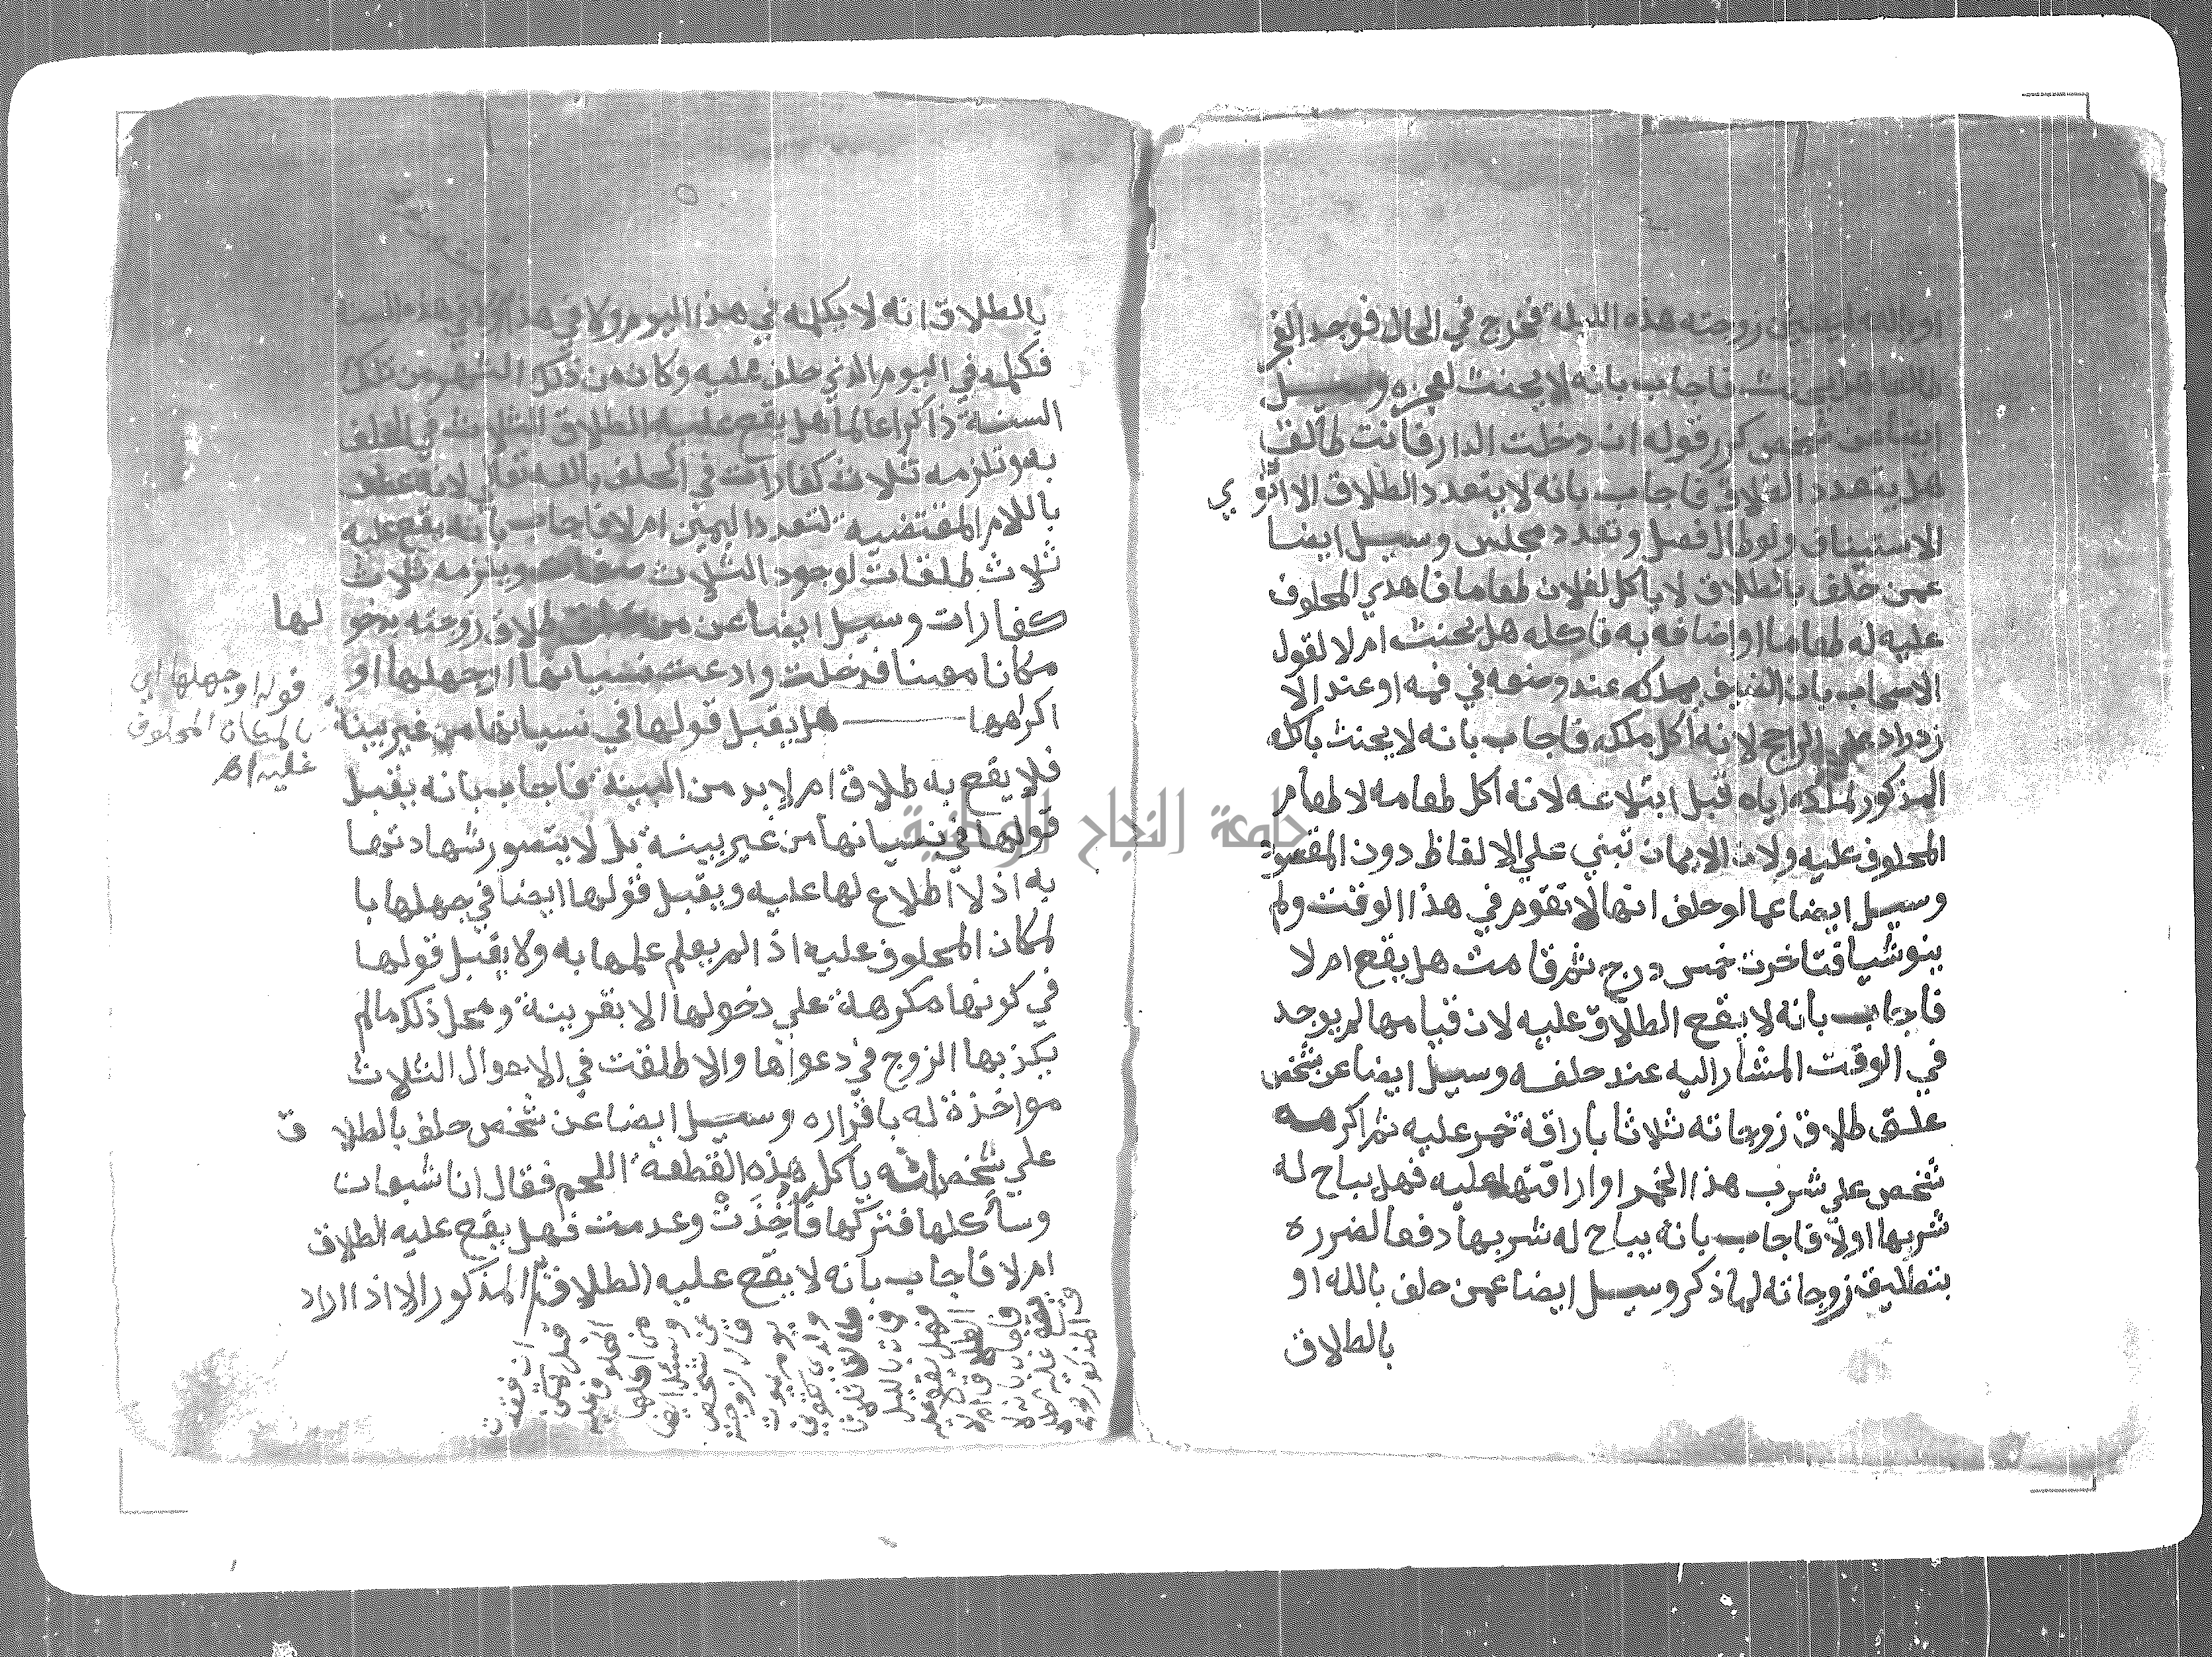 زوجته هذه الليلة فخرج في الحال فوجد الفجر
طالعا هل يحنث فاجاب بانه لا يحنث لعجزه وسيل
ايضا عن شخص كرر قوله ان دخلت الدار فانت طالق
هل يتعدد الطلاق فاجاب بانه لا يتعدد الطلاق الا ان نوي
الاستيناف ولو طال فصل وتعدد مجلس وسيل ايضا
عمن حلف بالطلاق لا ياكل لفلان طعاما فاهدي المحلوف
عليه له طعاما او اضافه به فاكله هل يحنث ام لا لقول
الاصحاب بان الضيف يملكه عند وضعه في فمه او عند الا
زدراد علي الراجح لانه اكل ملكه فاجاب بانه لا يحنث باكله
المذكور لملكه اياه قبل ابتلاعه لانه اكل طعامه لا طعام
المحلوف عليه ولان الايمان تبني علي الالفاظ دون المقصود
وسيل ايضا عما لو حلف انها لا تقوم في هذا الوقت ولم
ينو شيا فتاخرت خمس درج ثم قامت هل يقع ام لا
فاجاب بانه لا يقع الطلاق عليه لان قيامها لم يوجد
في الوقت المشار اليه عند حلفه وسيل ايضا عن شخص
علق طلاق زوجاته ثلاثا باراقة خمر عليه ثم اكرهه
شخص علي شرب هذا الخمر او اراقتها عليه فهل يباح له
شربها اولا فاجاب بانه يباح له شربها دفعا لضرره
بتطليق زوجاته لما ذكر وسيل ايضا عمن حلف بالله او
بالطلاق
بالطلاق انه لا يكلمه في هذا اليوم ولا في هذا ولا في هذه
فكلمه في اليوم الذي حلف عليه وكان من ذلك الشهر من تلك
السنة ذاكرا عالما هل يقع عليه الطلاق الثلاث في الحلف
به وتلزمه ثلاث كفارات في الحلف بالله تعالي لانه عطف
باللام المقتضيه لتعدد اليمين ام لا فاجاب بانه يقع عليه
ثلاث طلقات لوجود الثلاث ويلزمه ثلاث
كفارات وسيل ايضا عن من علق طلاق زوجته بدخو لها
مكانا معينا فدخلت وادعت نسيانها او جهلها او
اكراهها هل يقبل قولها في نسيانها من غير بينة
فلا يقع به طلاق ام لا بد من البينة فاجاب بانه يقبل
قولها في نسيانها من غير بينة بل لا يتصور شهادتها
به اذ لا اطلاع لها عليه ويقبل قولها ايضا في جهلها با
لمكان المحلوف عليه اذ الم يعلم علمها به ولا يقبل قولها
في كونها مكرهة علي دخولها الا بقرينة ومحل ذلك مالم
يكذبها الزوج في دعواها والا طلقت في الاحوال الثلاث
مواخذة له باقراره وسيل ايضا عن شخص حلف بالطلا ق
علي شخص انه ياكل هذه القطعة اللحم فقال انا شبعان
وسأ كلها فتركها فأخذت وعدمت فهل يقع عليه الطلاق
ام لا فاجاب بانه لا يقع عليه الطلاق المذكور الا اذا اراد
قوله او جهلها اي
بالمكان المحلوف
عليه اه
جامعة النجاح الوطنية